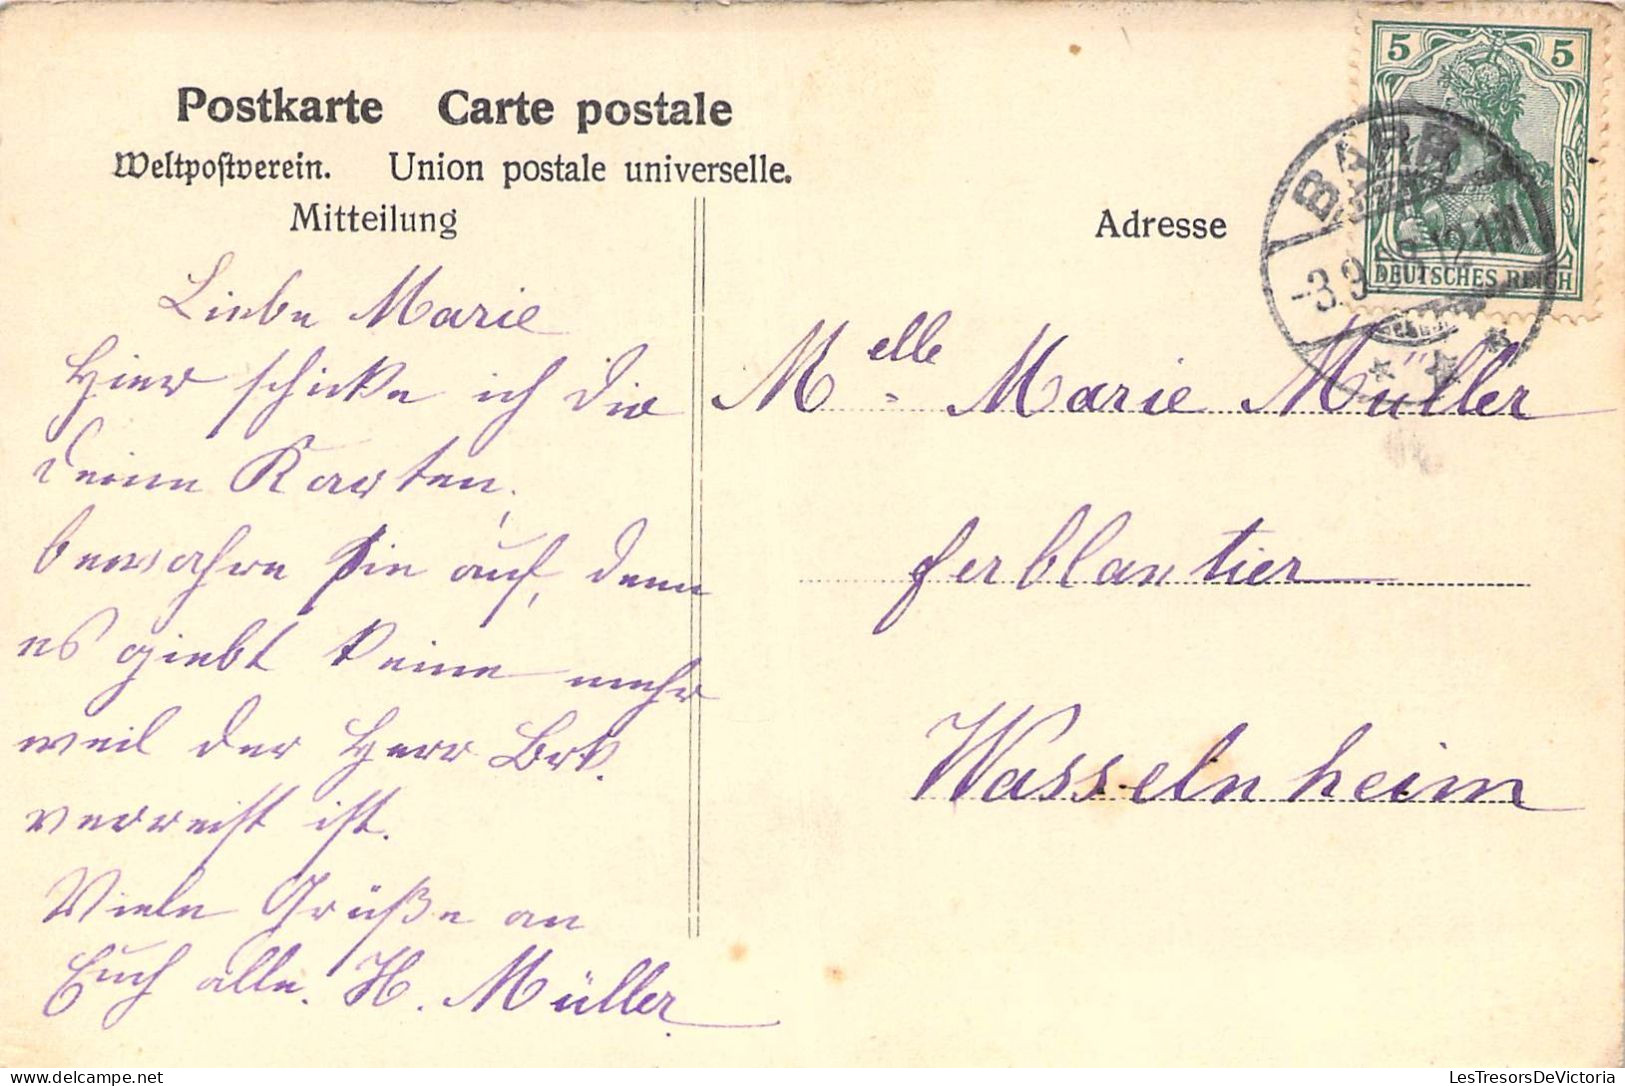 Postkarte Carte postale
Weltpostverein. Union postale universelle.
Mitteilung
Liebe Marie
Hier schicke ich die
deine Karten,
bewahre sie auf, denn
es giebt keine mehr
weil der Herr
verreist ist.
Viele Grüße an
Euch alle. H. Müller.
Adresse
5 5
DEUTSCHES REICH
BARR
-3.9 12-1N
* * *
Melle Marie Müller
ferblantier
Wasselnheim
LesTresorsDeVictoria
delcampe.net